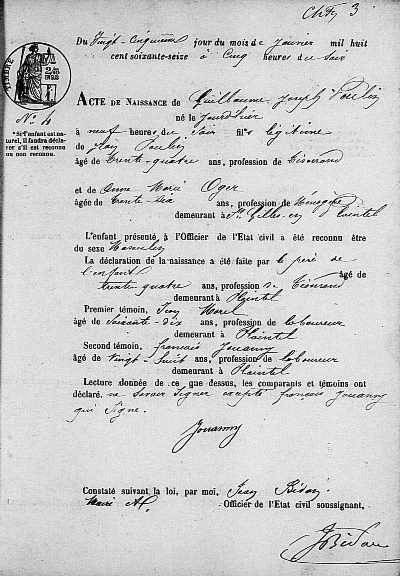 3
Du Vingt-Cinquième jour du mois de Janvier mil huit
cent soixante-seize à Cinq heures du Soir
TIMBRE
N° 4
*Si l'enfant est na-
turel, il faudra décla-
rer s'il est reconnu
ou non reconnu.
ACTE DE NAISSANCE de Guillaume Joseph Poulin
né le Jourd'hier
à neuf heures du Soir fils légitime
de Jean Poulin
âgé de trente-quatre ans, profession de tisserand
et de Anne Marie Oger
âgée de trente-six ans, profession de Ménagère
demeurant à Plaintel
L'enfant présenté à l'Officier de l'Etat civil a été reconnu être
du sexe Masculin
La déclaration de la naissance a été faite par le père de
l'enfant âgé de
trente quatre ans, profession de tisserand
demeurant à Plaintel
Premier témoin, Jean Morel
âgé de Soixante-dix ans, profession de laboureur
demeurant à Plaintel
Second témoin, françois Jouanny
âgé de Vingt-huit ans, profession de laboureur
demeurant à Plaintel
Lecture donnée de ce que dessus, les comparants et témoins ont
déclaré ne savoir signer excepté françois Jouanny
qui signe.
Jouanny
Constaté suivant la loi, par moi, Jean Bidan
Maire Officier de l'Etat civil soussigné,
JBidan